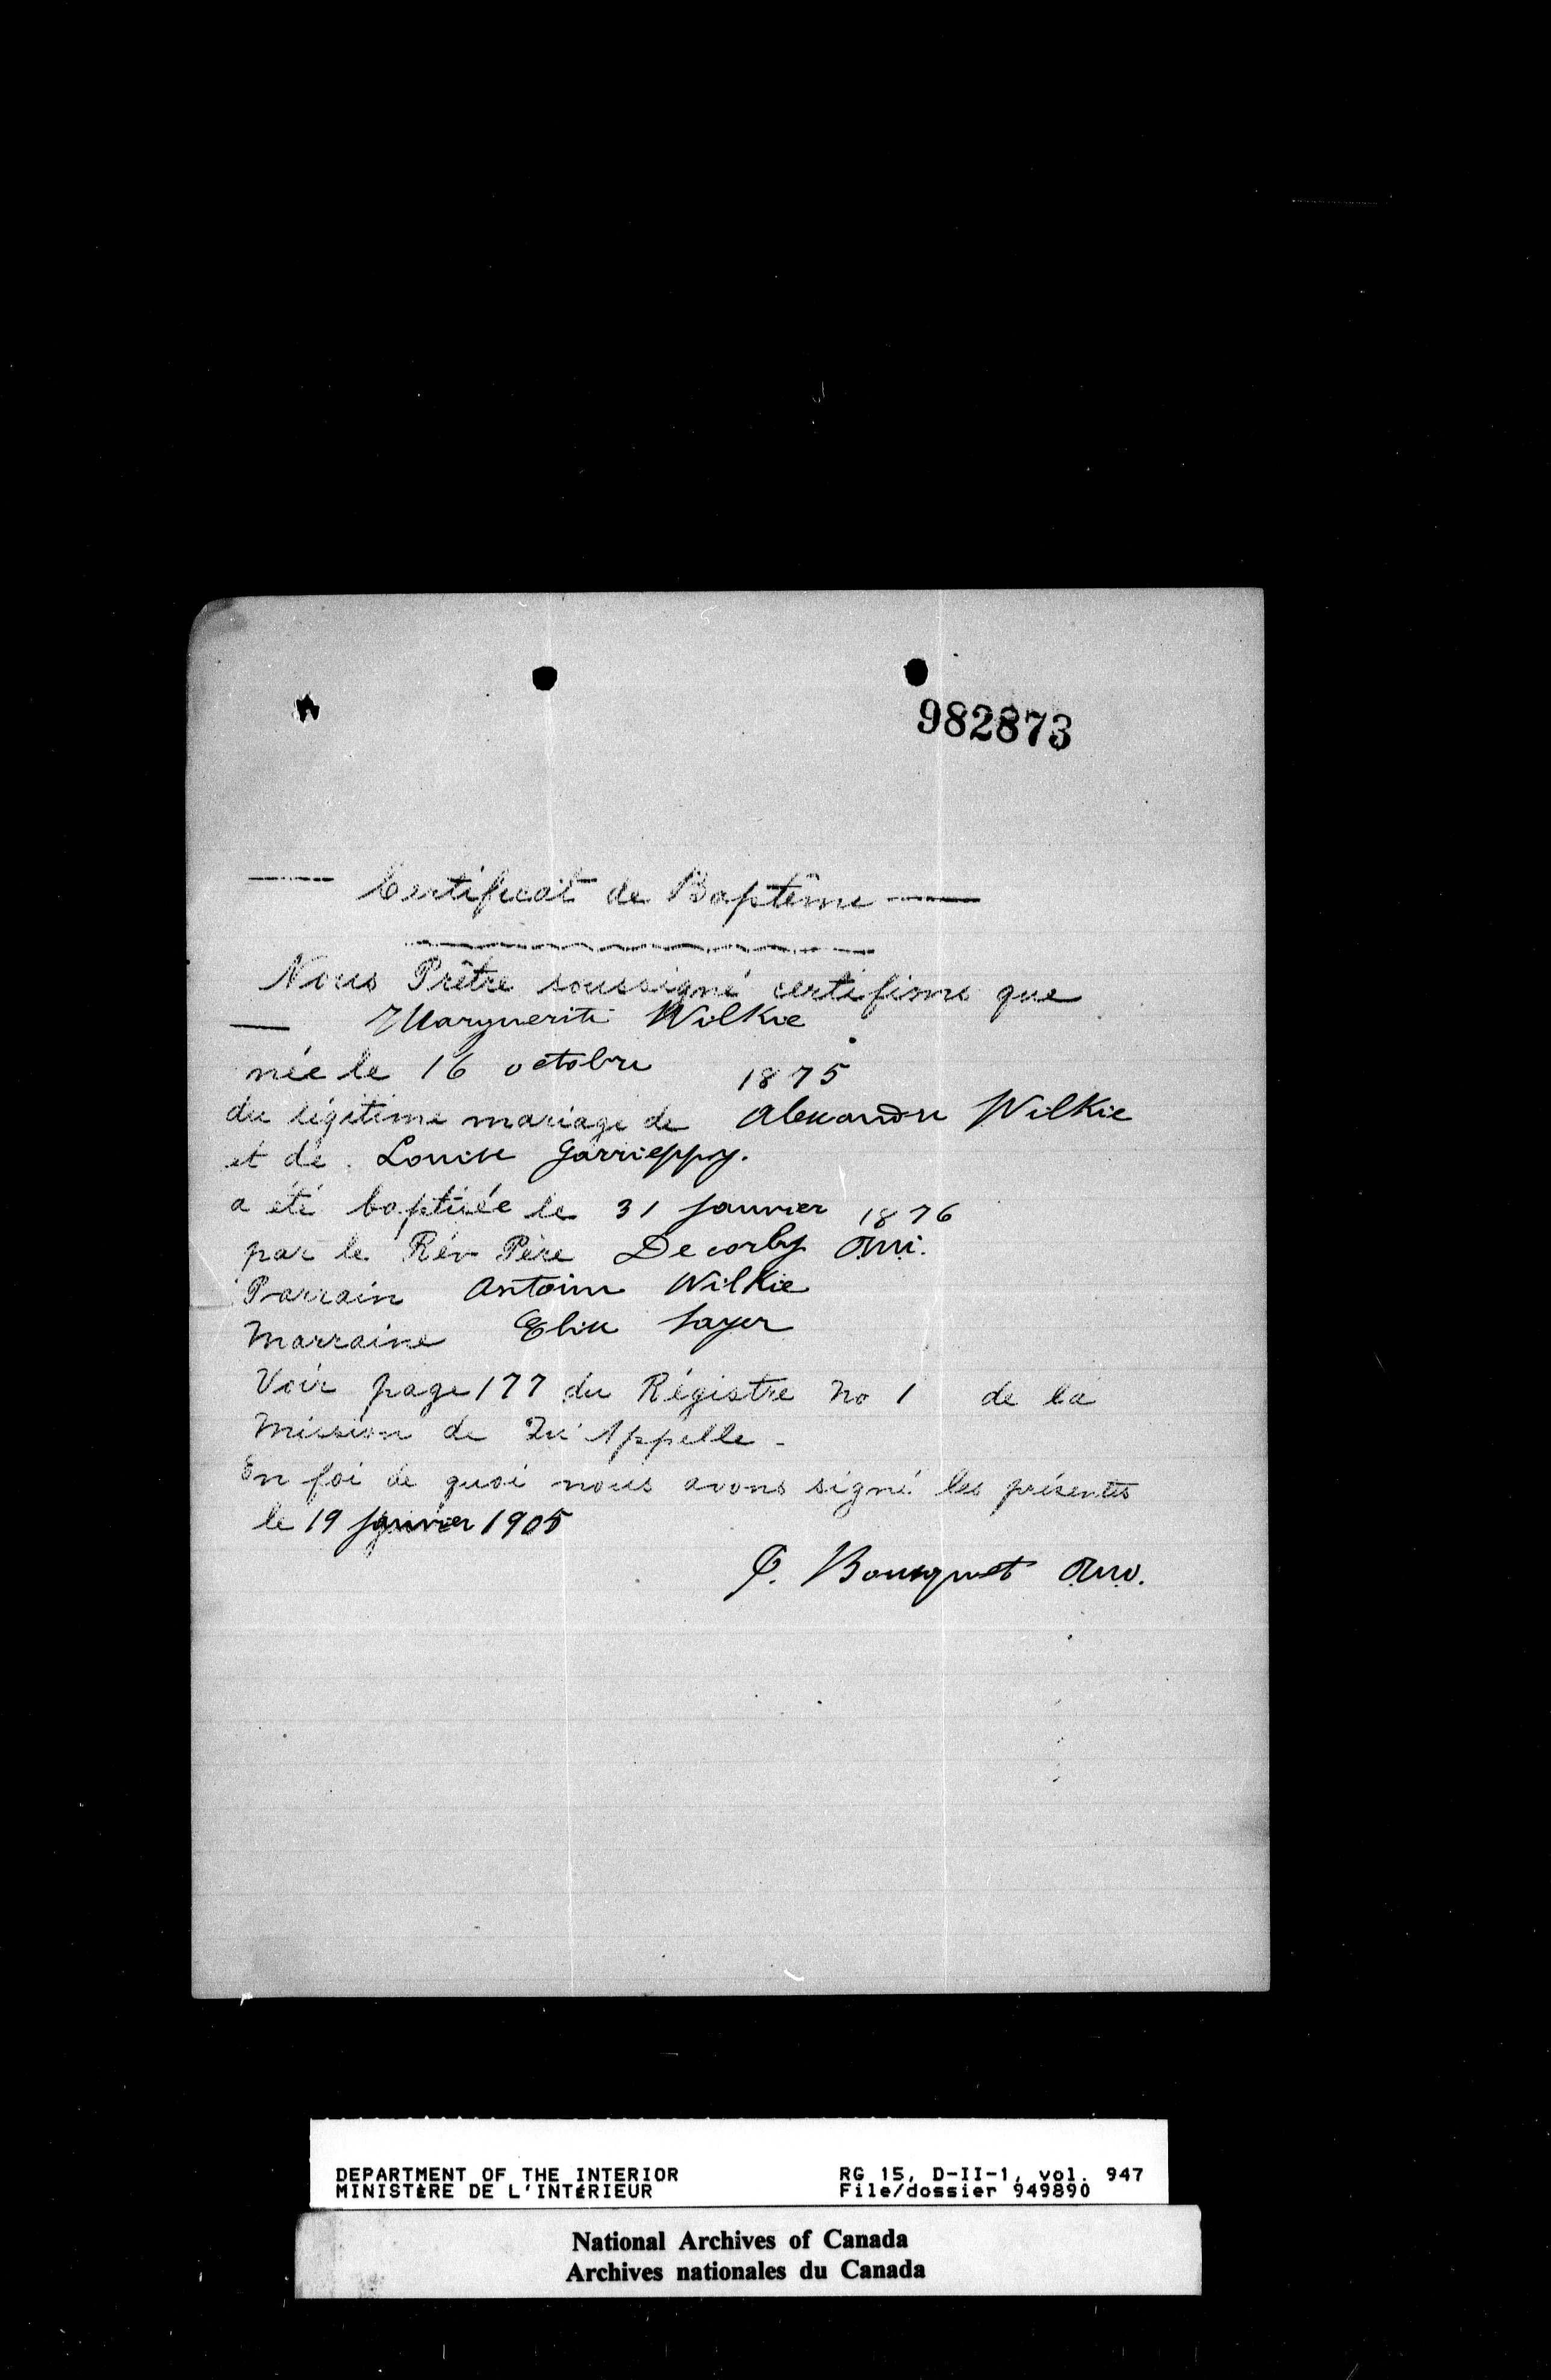 982873
Certificat de Baptême
Nous Prêtre soussigné certifions que
Marguerite Wilkie
née le 16 octobre 1875
du légitime mariage de Alexandre Wilkie
et de Louise Garrieppy.
a été baptisée le 31 janvier 1876
par le Rév Père Decorby omi.
Parrain Antoine Wilkie
Marraine Elise Sayer
Voir page 177 du Régistre No 1 de la
Mission de Qu'Appelle -
En foi de quoi nous avons signé les présentes
le 19 janvier 1905
P. Bousquet omi.
DEPARTMENT OF THE INTERIOR RG 15, D-II-1, vol. 947
MINISTÈRE DE L'INTÉRIEUR File/dossier 949890
National Archives of Canada
Archives nationales du Canada